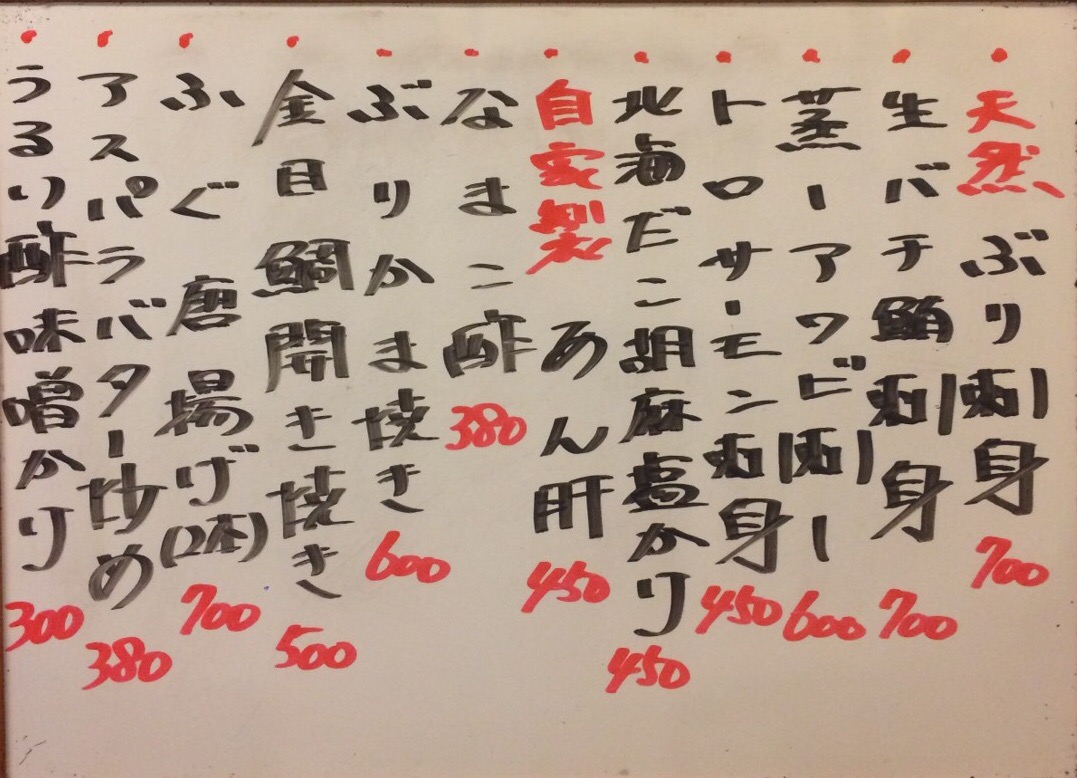 天然ぶり刺身 700
生バチ鮪刺身 700
蒸しアワビ刺し 600
トロサーモン刺身 450
北海だこ胡麻塩かり 450
自家製あん肝 450
なまこ酢 380
ぶりかま焼き 600
金目鯛開き焼き 500
ふぐ唐揚げ(2本) 700
アスパラバター炒め 380
うるい酢味噌かり 300